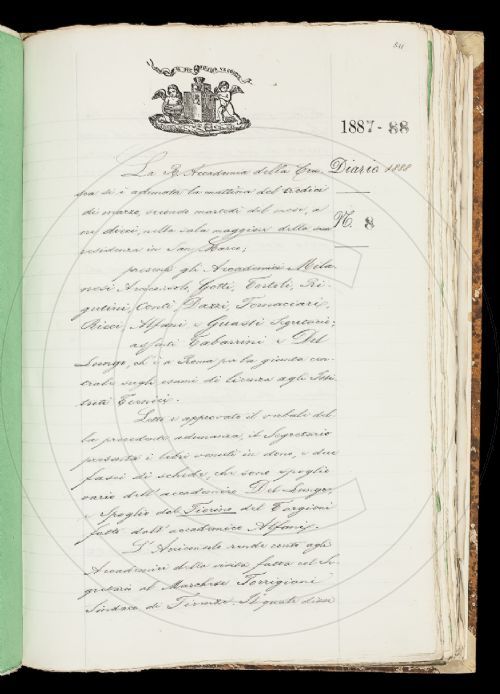 511
1887-88
Diario 1888
N. 8
La R. Accademia della Cru-
sca si è adunata la mattina del tredici
di marzo, secondo martedì del mese, a
ore dieci, nella sala maggiore della sua
residenza in San Marco;
presenti gli Accademici Mila-
nesi Arciconsolo, Gotti, Tortoli, Ri-
gutini, Conti, Dazzi, Tommasini,
Ricci, Alfani e Guasti Segretario;
assenti Tabarrini e Del
Lungo, ch'è a Roma per la giunta cen-
trale sugli esami di licenza agli Isti-
tuti Tecnici.
Letto e approvato il verbale del-
la precedente adunanza, il Segretario
presenta i libri venuti in dono, e due
fasci di schede, che sono spoglio
vario dell'accademico Del Lungo,
e spoglio dal Fiorino del Targioni
fatto dall'accademico Alfani.
L'Arciconsolo rende conto agli
Accademici della visita fatta col Se-
gretario al Marchese Torrigiani
Sindaco di Firenze. Il quale disse